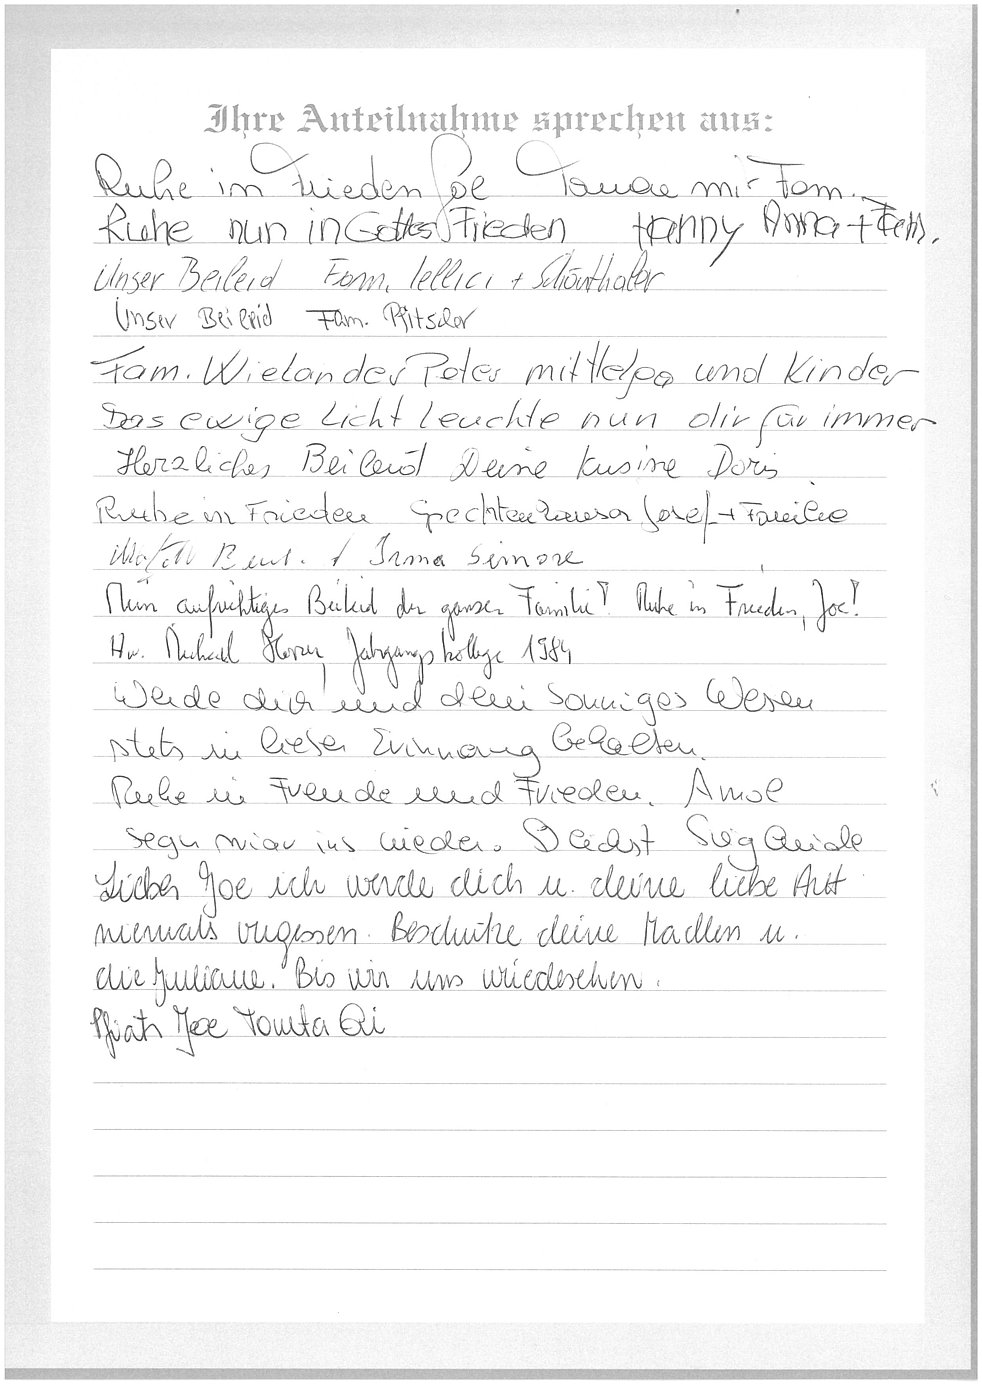 Ihre Anteilnahme sprechen aus:
Ruhe in Frieden Joe mit Fam.
Ruhe nun in Gottes Frieden Hanny Anna + Fam.
Unser Beileid Fam. Tellici + Schönthaler
Unser Beileid Fam. Pfitscher
Fam. Wielander Peter mit Helga und Kinder
Das ewige Licht leuchte nun dir für immer
Herzliches Beileid Deine Kusine Doris
Ruhe in Frieden Spechtenhauser Josef + Familie
Irma Simone
Mein aufrichtiges Beileid der ganzen Familie! Ruhe in Frieden, Joe!
Hw. Michael Horrer, Jahrgangskollege 1984
Werde dich und dein sonniges Wesen
stets in lieber Erinnerung behalten.
Ruhe in Freude und Frieden. Amol
segn miar ins wieder. Sieglinde
Lieber Joe ich werde dich u. deine liebe Art
niemals vergessen. Beschütze deine Madlen u.
die Juliane. Bis wir uns wiedersehen.
Pfiati Joe